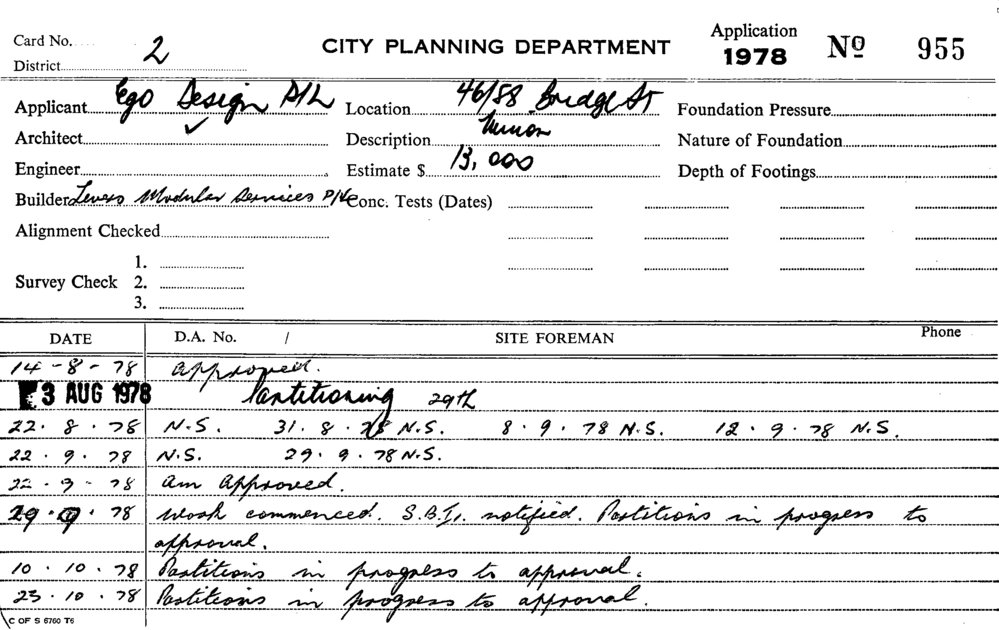 Card No. 2 CITY PLANNING DEPARTMENT Application 1978 Nº 955
District
Applicant Ego Design P/L Location 46/58 Bridge St Foundation Pressure
Architect Description Minor Nature of Foundation
Engineer Estimate $ 13,000 Depth of Footings
Builder Levers Modular Services P/L Conc. Tests (Dates)
Alignment Checked
Survey Check 1.
2.
3.
DATE D.A. No. / SITE FOREMAN Phone
14-8-78 Approved.
3 AUG 1978 Partitioning 29th
22.8.78 N.S. 31.8.78 N.S. 8.9.78 N.S. 12.9.78 N.S.
22.9.78 N.S. 29.9.78 N.S.
22-9-78 am Approved.
29.9.78 Work commenced. S.B.I. notified. Partitions in progress to
approval.
10.10.78 Partitions in progress to approval.
23.10.78 Partitions in progress to approval.
C OF S 6760 T6